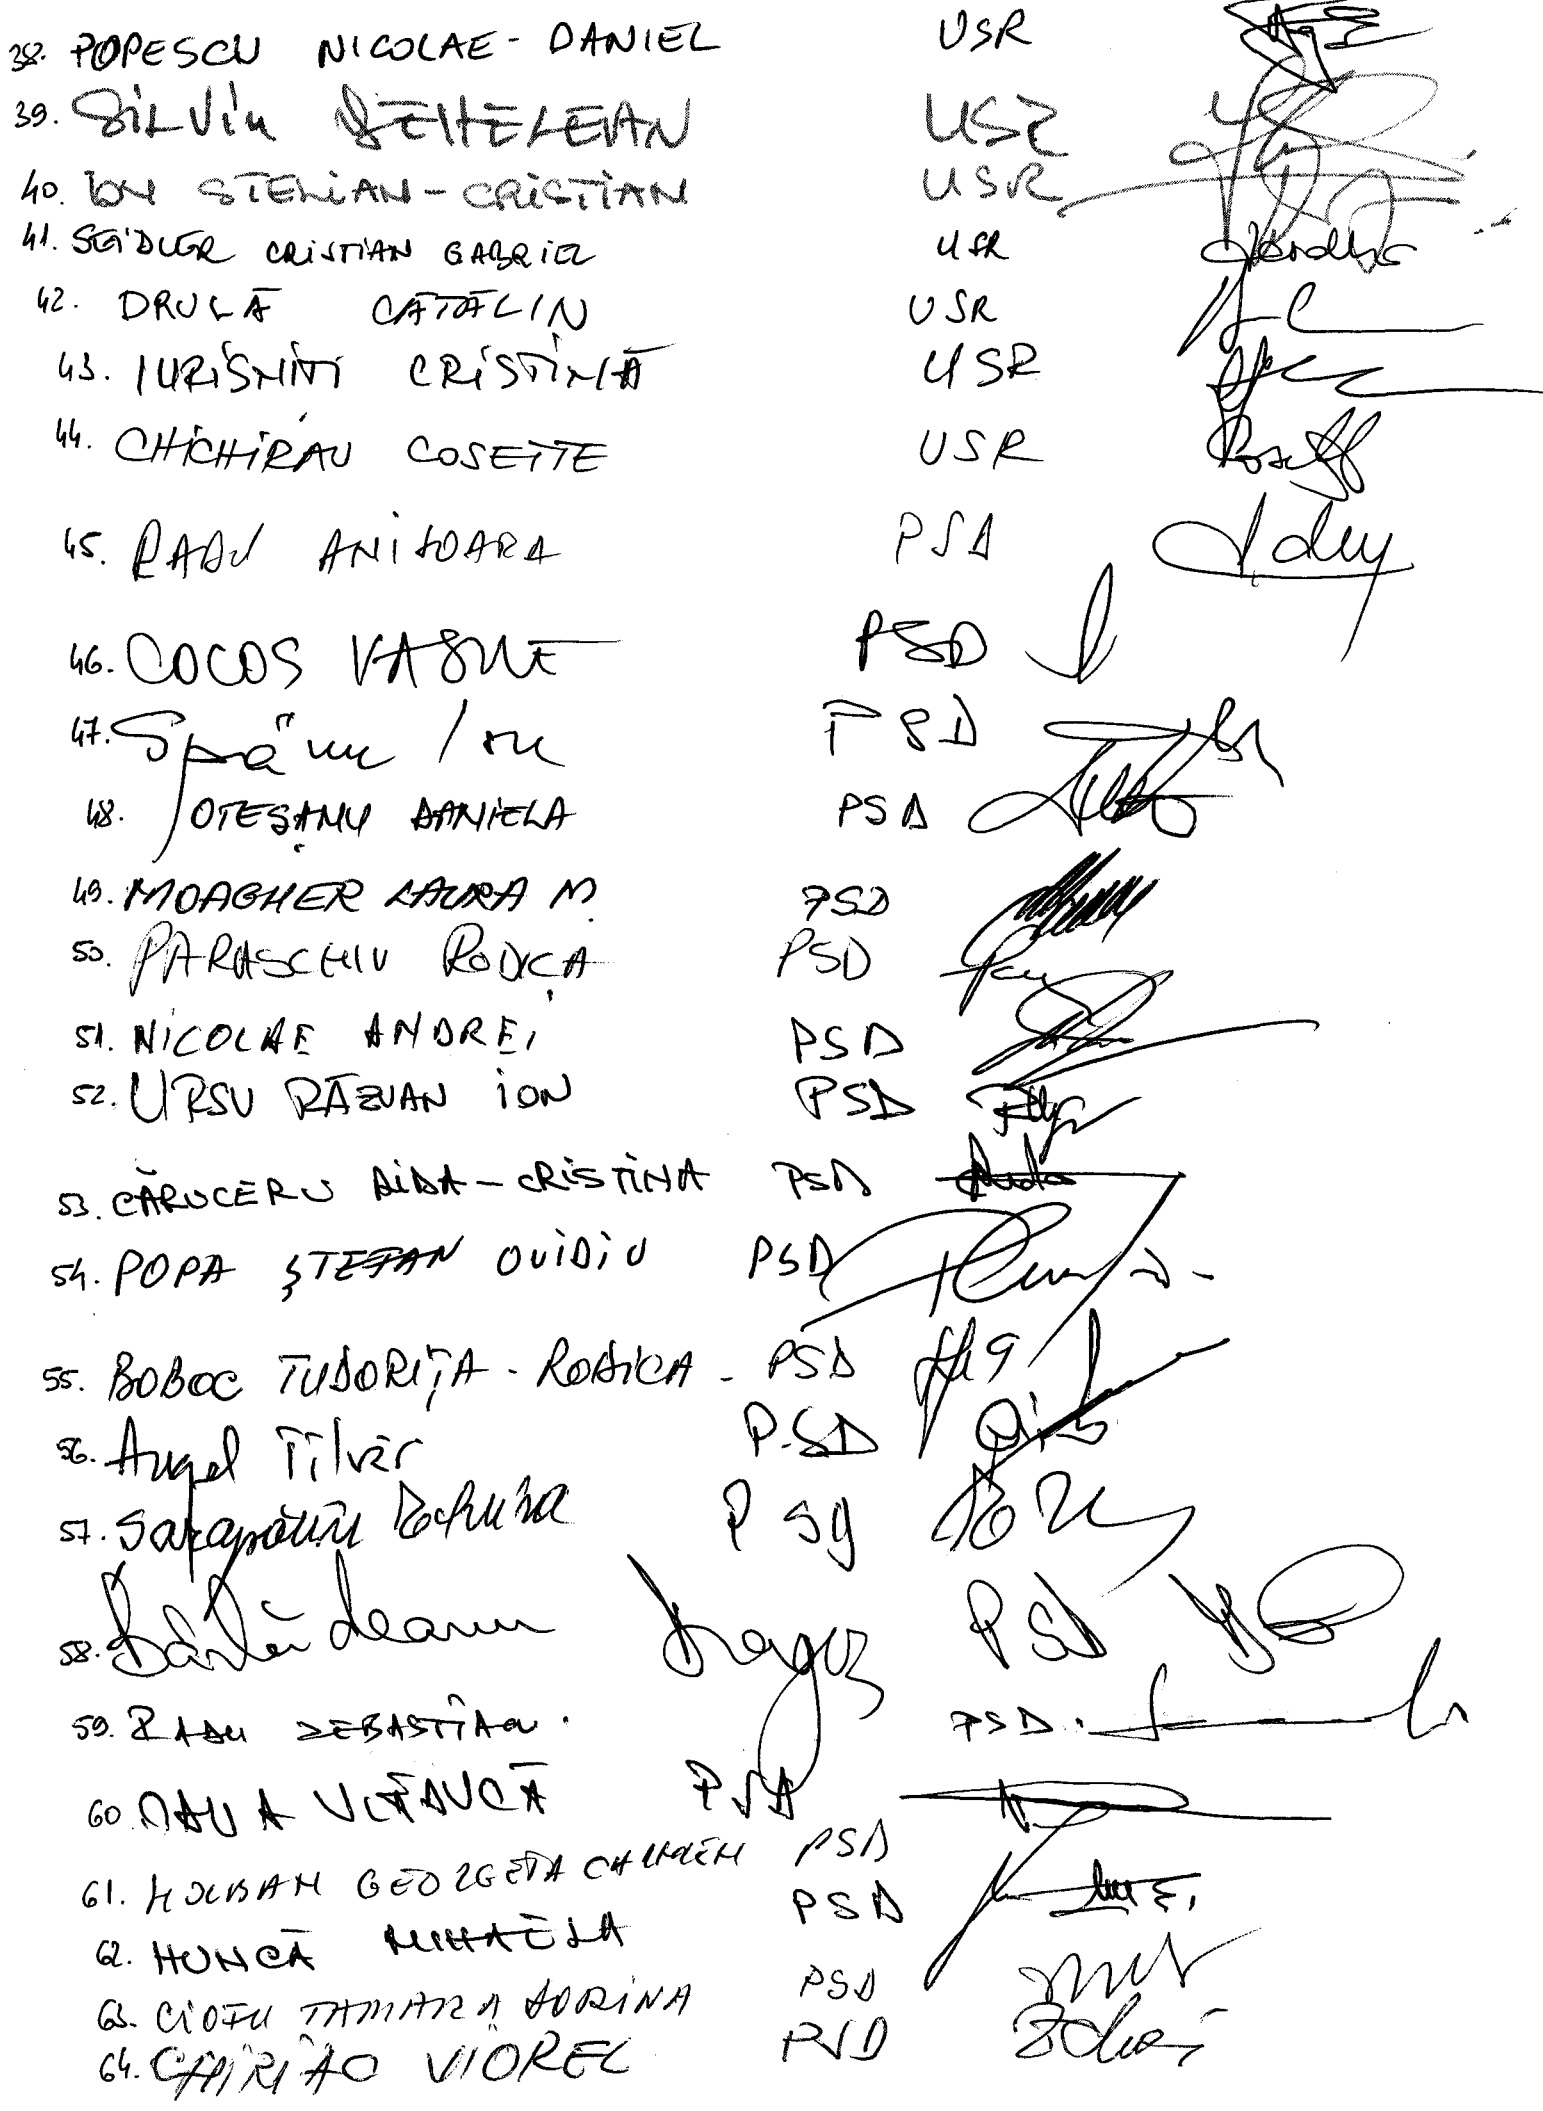 38. POPESCU NICOLAE-DANIEL USR
39. SILVIU DEHELEAN USR
40. ION STELIAN-CRISTIAN USR
41. SEIDLER CRISTIAN GABRIEL USR
42. DRULĂ CĂTĂLIN USR
43. IURIȘNITI CRISTINA USR
44. CHICHIRĂU COSETTE USR
45. RADU ANIȘOARA PSD
46. COCOȘ VASILE PSD
47. Spânu Ion PSD
48. OTEȘANU DANIELA PSD
49. MOAGHER LAURA M. PSD
50. PARASCHIV RODICA PSD
51. NICOLAE ANDREI PSD
52. URSU RĂZVAN ION PSD
53. CĂRUCERU AIDA-CRISTINA PSD
54. POPA ȘTEFAN OVIDIU PSD
55. BOBOC TUDORIȚA-RODICA - PSD
56. Angel Tîlvăr PSD
57. PSD
58. Bârlădeanu Dragoș PSD
59. RADU SEBASTIAN. PSD.
60. PSD
61. HOLBAN GEORGETA CARMEN PSD
62. HUNCĂ MIHAELA PSD
63. CIOFU TAMARA DORINA PSD
64. CHIRIAC VIOREL PSD